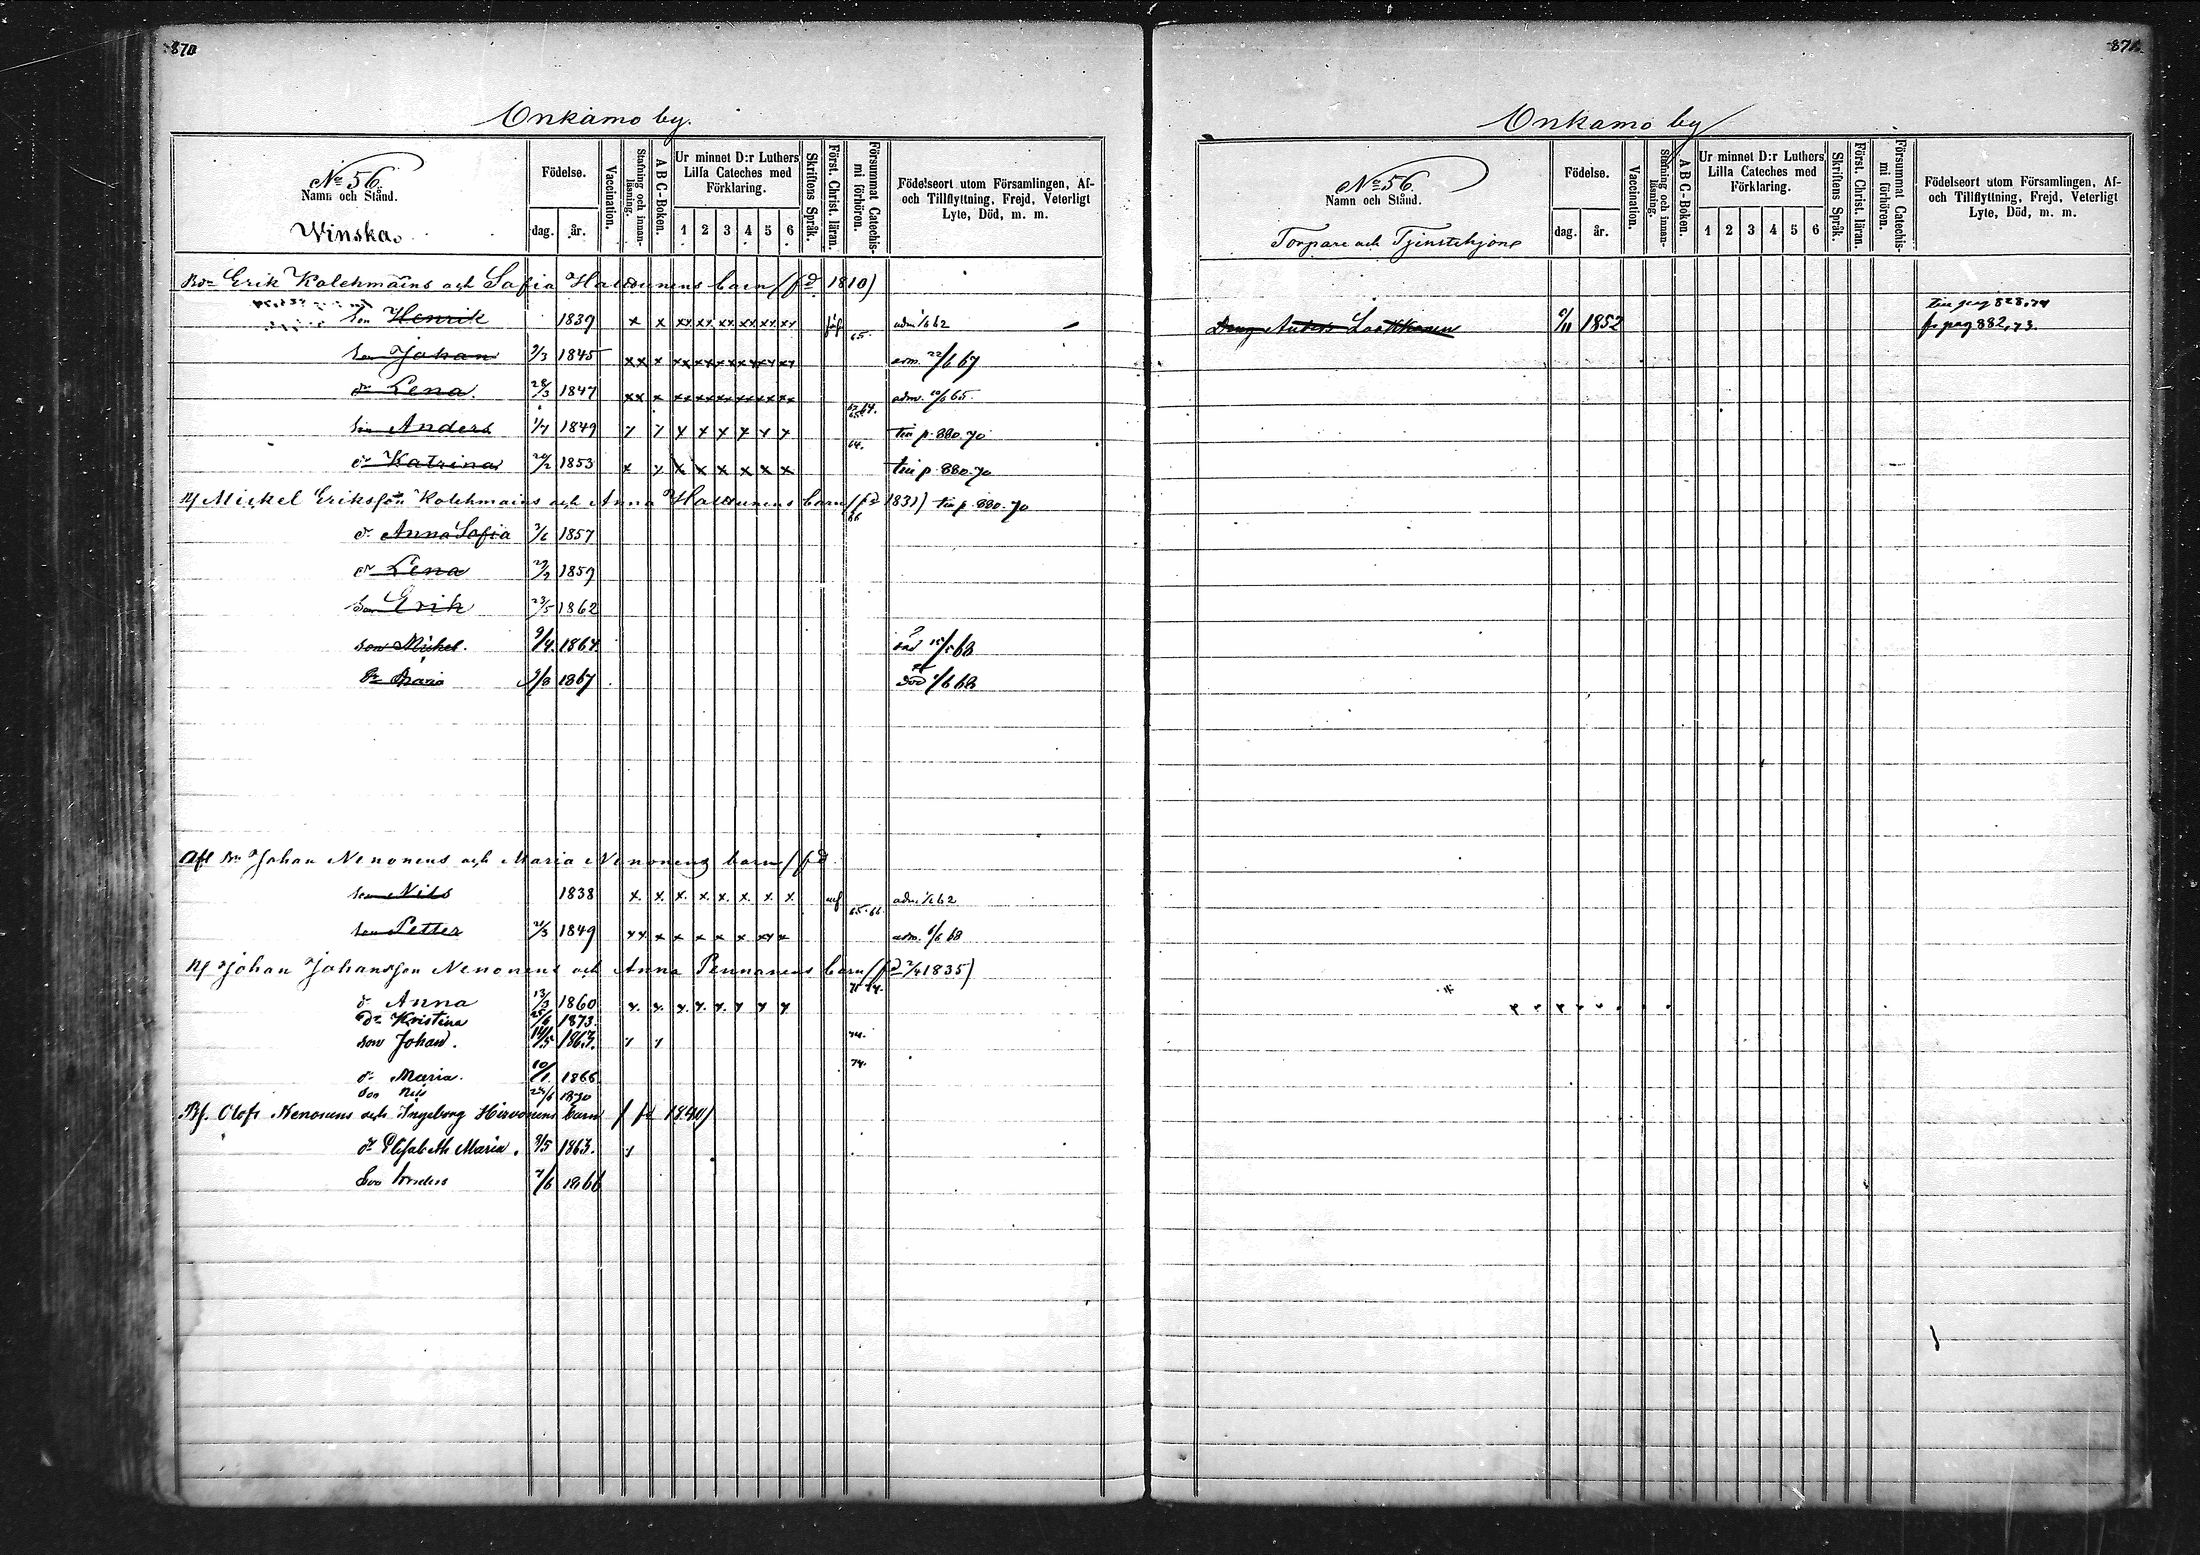 870
Onkamo by.
No 56.
Namn och Stånd.
Winska.
Födelse.
dag. år.
Vaccination.
Stafning och innanläsning.
ABC-Boken.
Ur minnet D:r Luthers Lilla Cateches med Förklaring.
1 2 3 4 5 6
Skriftens Språk.
Först. Christ. läran.
Försummat Catechismi förhören.
Födelseort utom Församlingen, Af- och Tillflyttning, Frejd, Veterligt Lyte, Död, m. m.
Bdn Erik Kolehmains och Sofia barn (fd 1810)
Son Henrik 1839 x x xx xx xx xx xx xx 65. adm 1/6 62
Son Johan 2/3 1845 xx x xx xx xx xx xx xx adm. 22/6 67
dr Lena. 28/3 1847 xx x xx xx xx xx xx xx adm. 10/6 65
Son Anders 1/7 1849 x x x x x x x x till p. 880. 70
dr Katrina 20/2 1853 x x x x x x x x till p. 880. 70
Bf Mickel Eriksson Kolehmains och Anna barn (fd 1831) till p. 880. 70
66
dr Anna Sofia 2/6 1857
dr Lena 1859
Son Erik 23/5 1862
son Mickel. 9/4 1864 död 15/5 68
Dr Maria 1867 död 68
Afl Bdn Johan Nenonens och Maria Nenonens barn (fd
son Nils 1838 x. x. x. x. x. x. x. x adm. 1/6 62
65. 66.
son Petter 21/3 1849 xx x x x x x xx x adm. 6/6 68
Bf Johan Johansson Nenonens och Anna Pennanens barn (fd 2/4 1835)
dr Anna 13/3 1860 x. x. x. x. x. x x x
Dr Kristina 25/6 1873.
son Johan. 1863. 74.
dr Maria. 10/1. 1866 74.
son Nils 24/6 1870
Bf. Olofs Nenonens och Ingeborg Hirvonens barn (fd 1840)
dr Elisabeth Maria. 9/5 1863.
Son Anders 7/6 1866
871.
Onkamo by
No 56.
Namn och Stånd.
Torpare och Tjenstehjon
Födelse.
dag. år.
Vaccination.
Stafning och innanläsning.
ABC-Boken.
Ur minnet D:r Luthers Lilla Cateches med Förklaring.
1 2 3 4 5 6
Skriftens Språk.
Först. Christ. läran.
Försummat Catechismi förhören.
Födelseort utom Församlingen, Af- och Tillflyttning, Frejd, Veterligt Lyte, Död, m. m.
till pag 828. 74
Dräng Anders Laakkonen 6/11 1852 fr pag 882, 73.